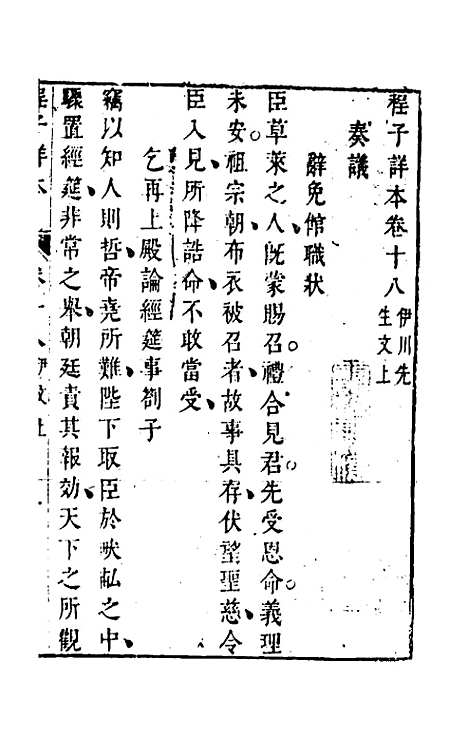 程子詳本卷十八 伊川先生文上
奏議
辭免館職狀
臣草萊之人旣蒙賜召禮合見君先受恩命義理
未安祖宗朝布衣被召者故事具存伏望聖慈令
臣入見所降誥命不敢當受
乞再上殿論經筵事劄子
竊以知人則哲帝堯所難陛下取臣於畎畝之中
驟置經筵非常之舉朝廷責其報効天下之所觀
程子詳本 卷十八